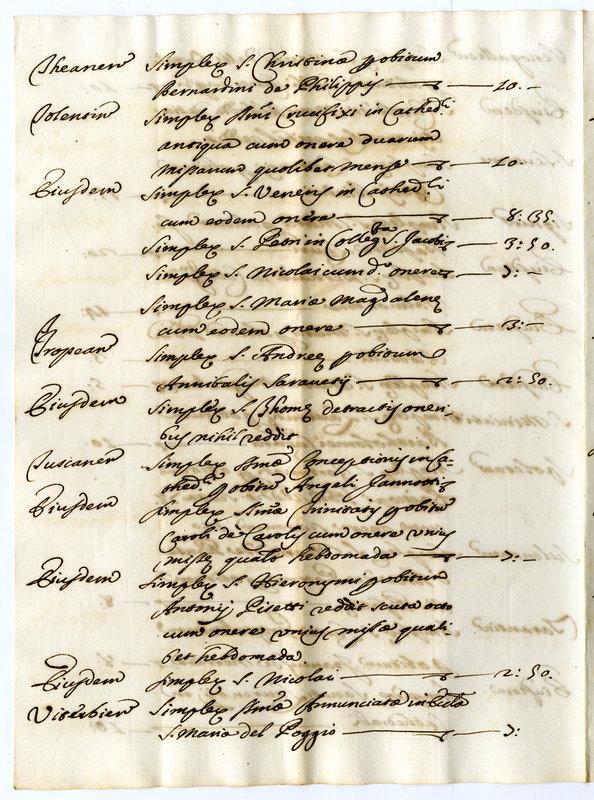 Theanen Simplex S. Christinæ p obitum
Bernardini de Philippis — 20. –
Tolentin Simplex SSmi Crucifixi in Cathedli
antiqua cum onere duarum
missarum quolibet mense — 20
Eiusdem Simplex S. Venerij in Cathedli
cum eodem onere — 8: 35.
Simplex S. Petri in Collegta S. Jacobi — 3: 50.
Simplex S. Nicolai cum do onere — 7: –
Simplex S. Mariæ Magdalenę
cum eodem onere — 13: –
Tropean Simplex S. Andreę p obitum
Annibalis Saraueti — 2: 50.
Eiusdem Simplex S. Thomę detractis oneri-
bus nihil reddit
Tuscanen Simplex SSmæ Conceptionis in Ca-
thedli p obitū Angeli Jannotti
Eiusdem Simplex SSmæ Trinitatis p obitū
Caroli de Carolis cum onere vnius
missę qualt hebdomada — 7: –
Eiusdem Simplex S. Hieronymi p obitum
Antonij Pisetti reddit scuta octo
cum onere vnius missæ quali
bet hebdomada
Eiusdem Simplex S. Nicolai — 2: 50.
Viterbien Simplex SSmæ Annunciatæ in Eccla
S. Maria del Poggio — 7: